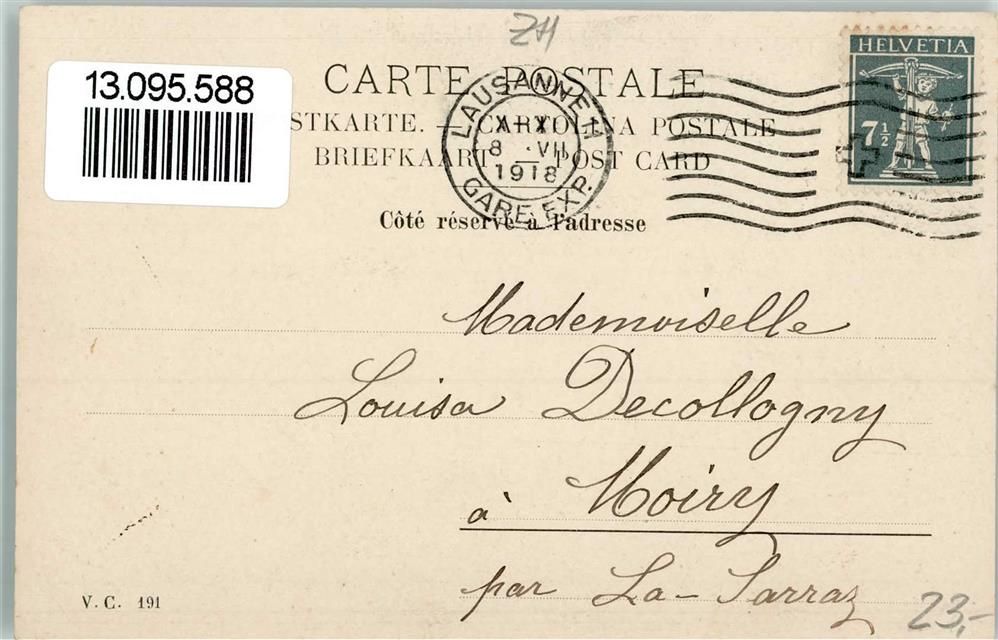 ZH
13.095.588
CARTE POSTALE
STKARTE. — CARTOLINA POSTALE
BRIEFKAART — POST CARD
Côté réservé à l'adresse
LAUSANNE
X-X
8 · VII
1918
GARE EXP.
HELVETIA
7½
Mademoiselle
Louisa Decollogny
à Moiry
par La-Sarraz
V. C. 191
23,-